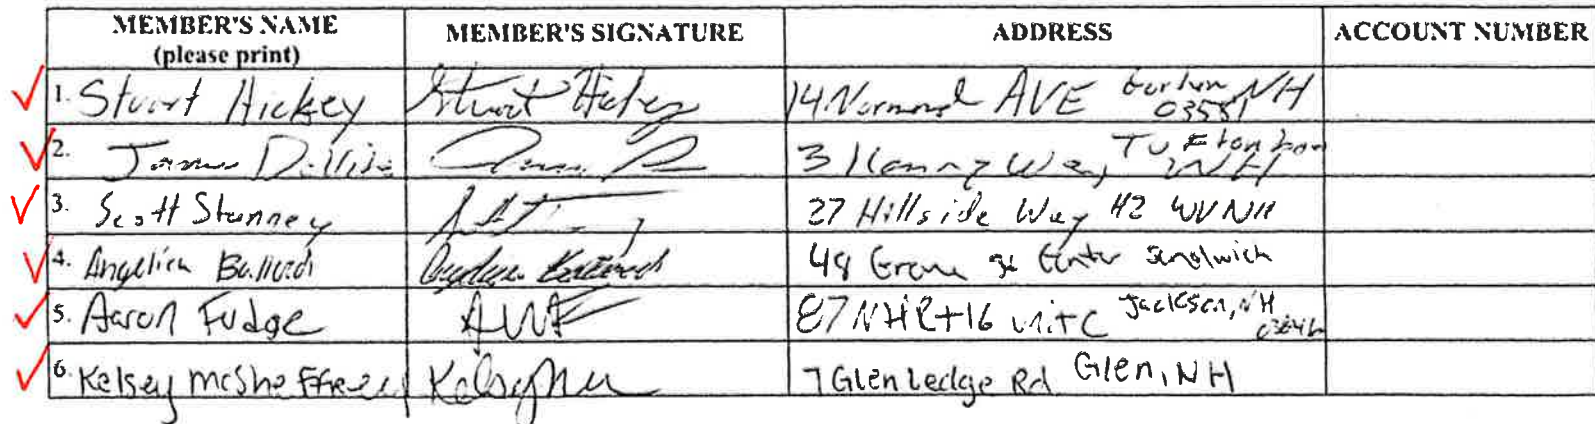 MEMBER'S NAME (please print) MEMBER'S SIGNATURE ADDRESS ACCOUNT NUMBER
1. Stuart Hickey Stuart Hickey 14 Normand AVE Gorham NH 03581
2. James 3 Way NH
3. Scott Stanney 27 Hillside Way #2 WV NH
4. Angelica 48 Grove St Center Sandwich
5. Aaron Fudge AWF 87 NH Rt 16 Unit C Jackson, NH 03846
6. Kelsey McSheffrey 7 Glen Ledge Rd Glen, NH